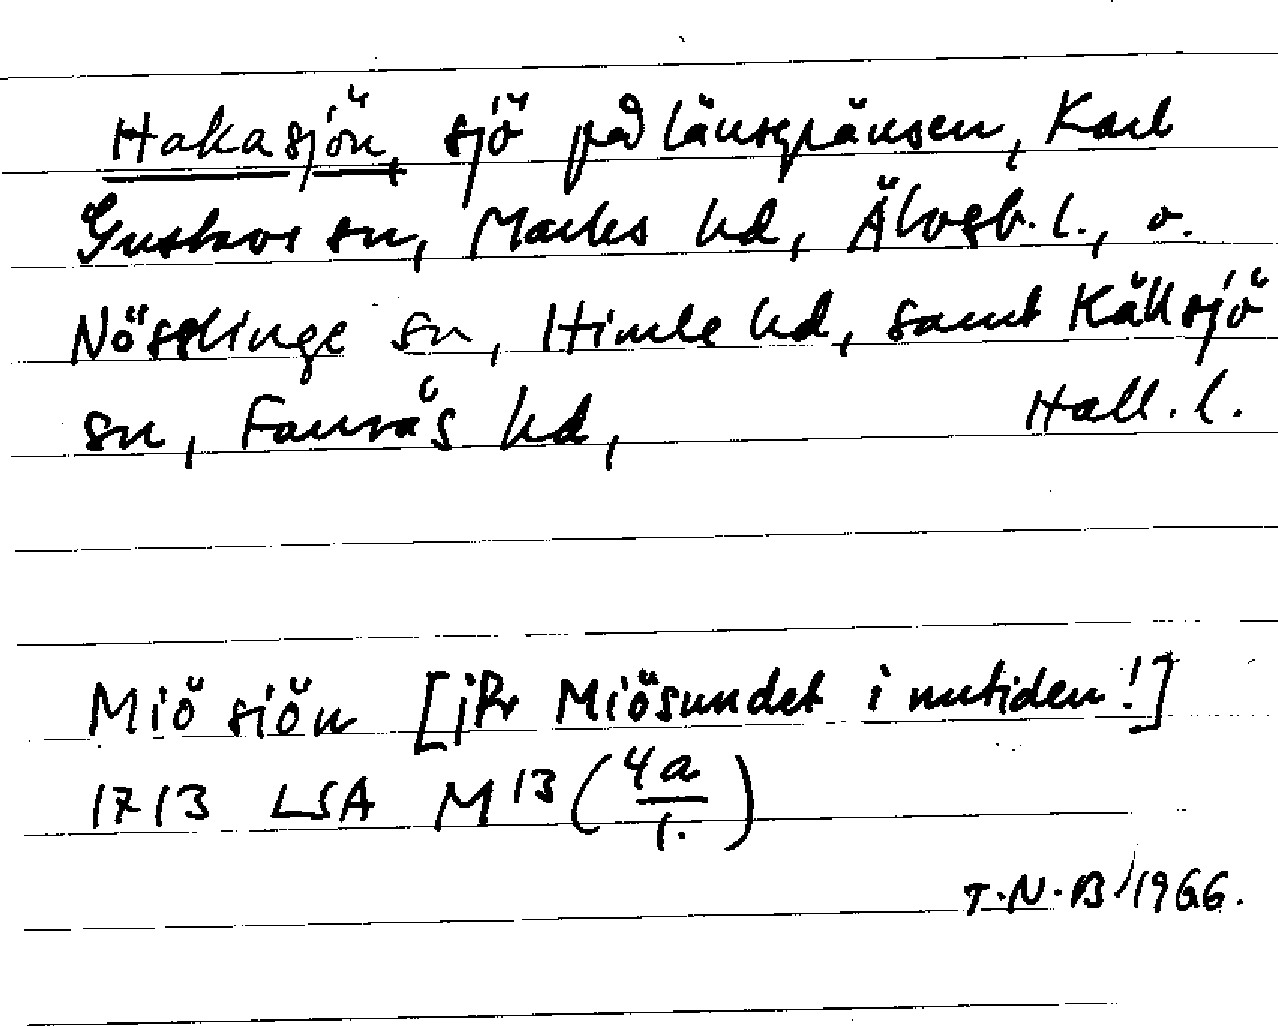 Hakasjön, sjö på länsgränsen, Karl
Gustavs sn, Marks hd, Älvsb. l., o.
Nösslinge sn, Himle hd, samt Källsjö
sn, Faurås hd, Hall. l.
Miö siön [jfr Miösundet i nutiden!]
1713 LSA M13 (4a/1.)
T.N.B/1966.